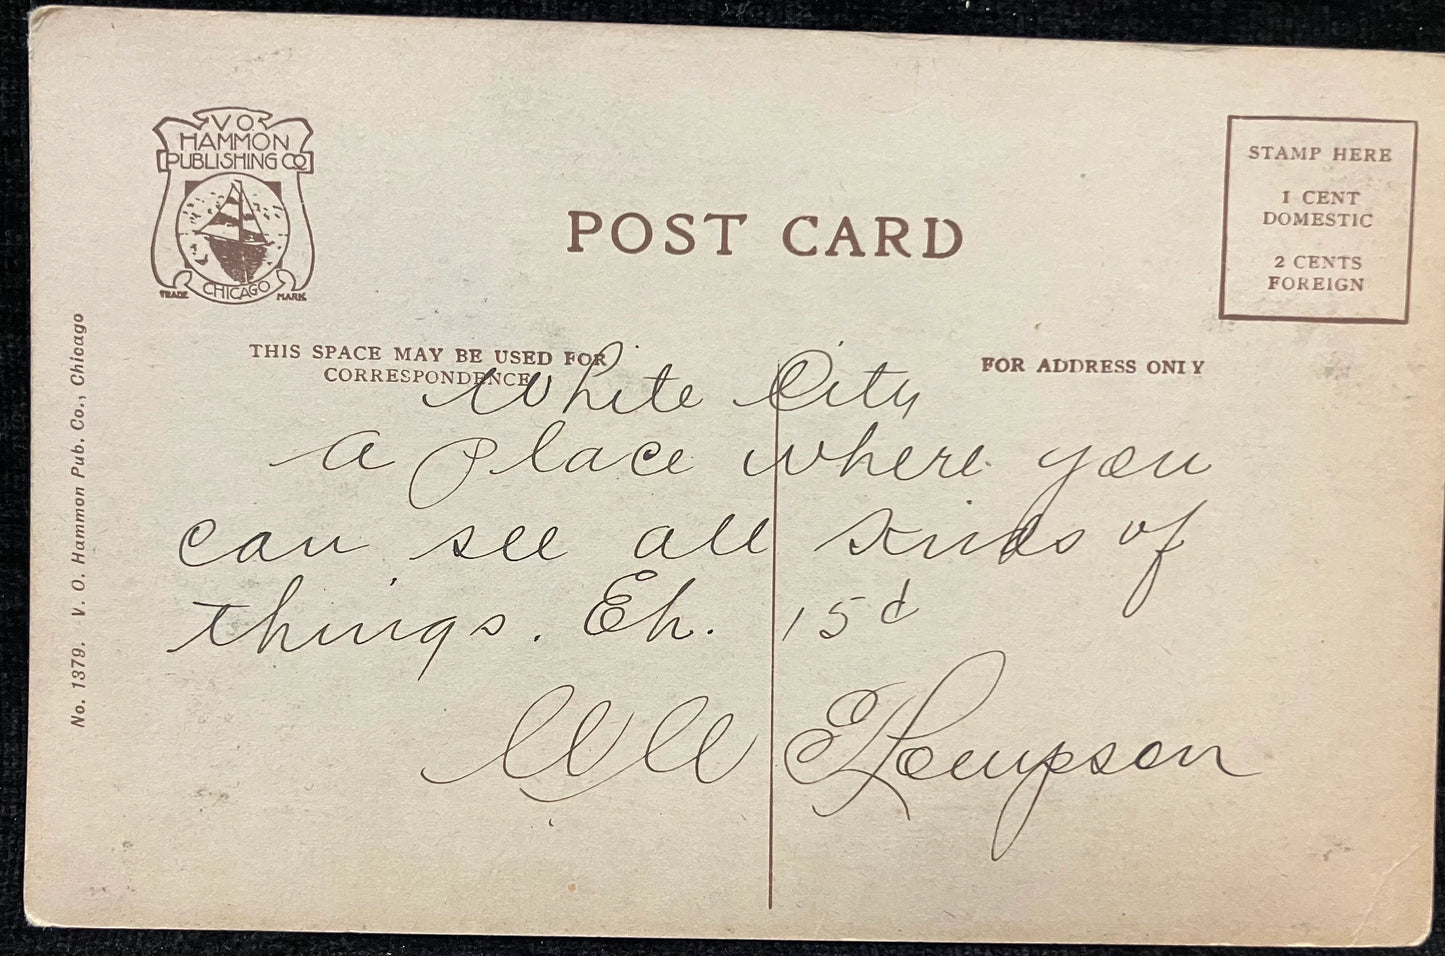 V O
HAMMON
PUBLISHING CO
CHICAGO
TRADE MARK
POST CARD
STAMP HERE
1 CENT
DOMESTIC
2 CENTS
FOREIGN
THIS SPACE MAY BE USED FOR
CORRESPONDENCE
FOR ADDRESS ONLY
No. 1379. V. O. Hammon Pub. Co., Chicago
White City
a place where you
can see all kinds of
things. Eh. 15¢